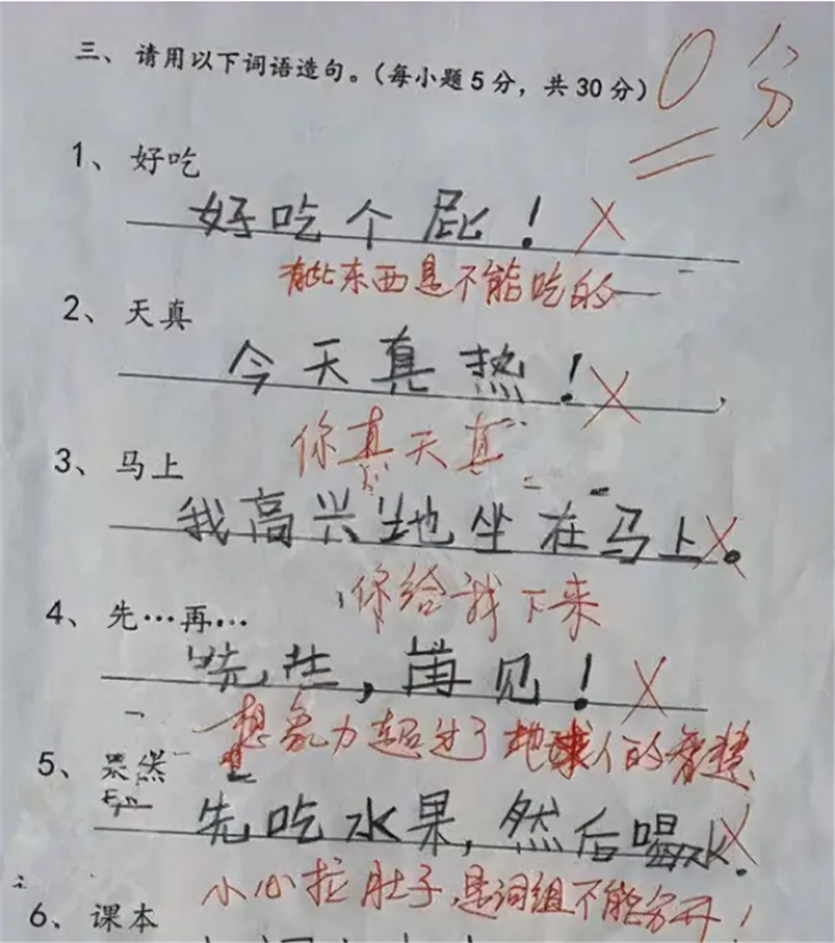 三、请用以下词语造句。(每小题5分，共30分) 0分
1、好吃
好吃个屁！
有些东西是不能吃的
2、天真
今天真热！
你真天真
3、马上
我高兴地坐在马上。
你给我下来
4、先…再…
先生，再见！
想象力超过了地球人的智慧
5、果然
先吃水果，然后喝水.
小心拉肚子，是词组不能分开！
6、课本